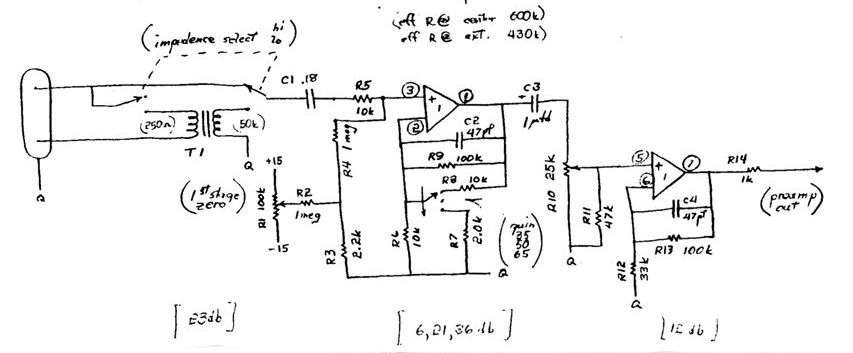 (eff R @ center 600k)
eff R @ ext. 430k)
(impedence select hi
lo)
C1 .18
R5
10k
3
+
1
1
2
C2
47pf
R9 100k
R8 10k
R4 1 meg
C3
+
1 µfd
(250Ω)
(50k)
T1
+15
(1st stage
zero)
R1 100k
-15
R2
1 meg
R3
2.2k
R6
10k
R7
2.0k
(gain
65)
R10 25K
R11
47k
5
6
+
1
7
C4
47pf
R13 100k
R12
33k
R14
1k
(preamp
out)
[23db]
[6,21,36 db]
[12 db]